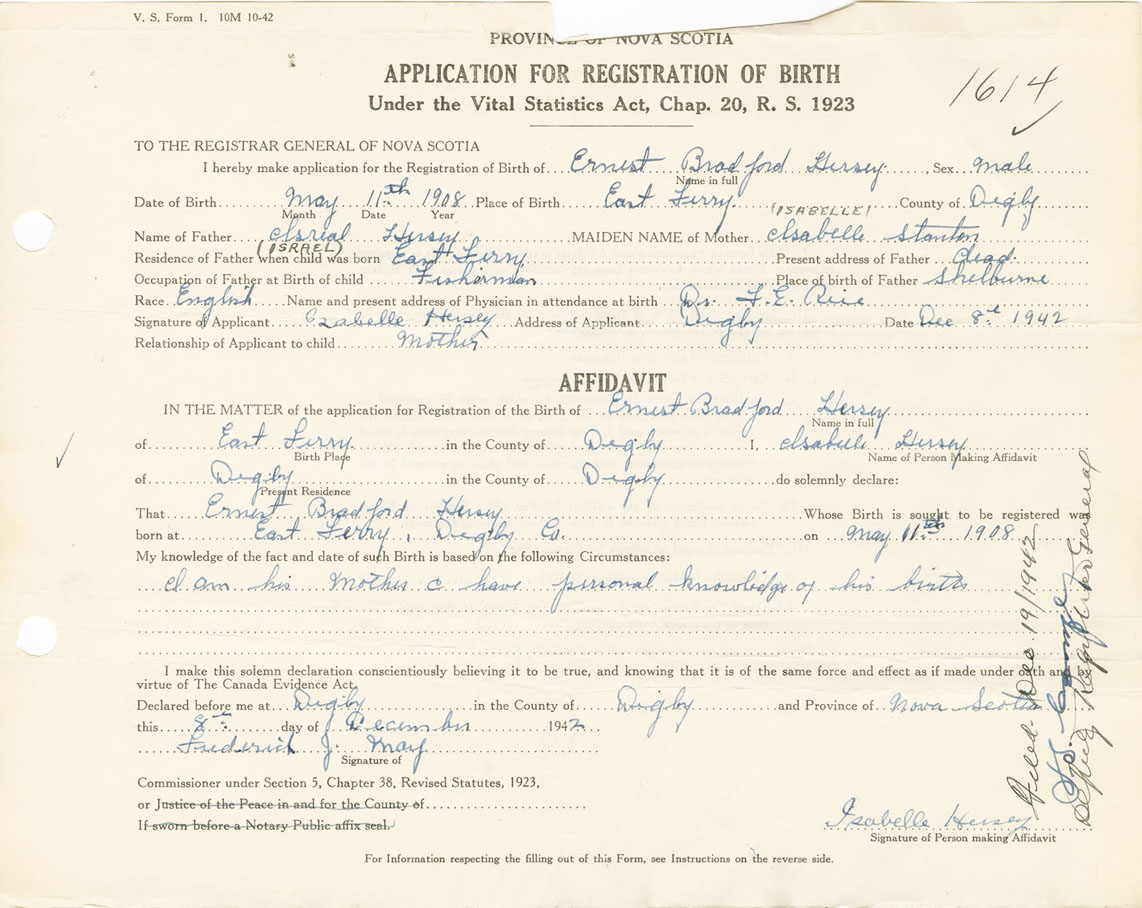 V. S. Form 1. 10M 10-42
PROVINCE OF NOVA SCOTIA
APPLICATION FOR REGISTRATION OF BIRTH
Under the Vital Statistics Act, Chap. 20, R. S. 1923
1614
TO THE REGISTRAR GENERAL OF NOVA SCOTIA
I hereby make application for the Registration of Birth of Ernest Bradford Hersey, Sex male
Name in full
Date of Birth May 11th 1908 Place of Birth East Ferry County of Digby
Month Date Year
(ISABELLE)
Name of Father Isrial Hersey MAIDEN NAME of Mother Isabelle Stanton
(ISRAEL)
Residence of Father when child was born East Ferry Present address of Father Dead
Occupation of Father at Birth of child Fisherman Place of birth of Father Shelburne
Race English Name and present address of Physician in attendance at birth Dr. F. E. Rice
Signature of Applicant Izabelle Hersey Address of Applicant Digby Date Dec 8th 1942
Relationship of Applicant to child Mother
AFFIDAVIT
IN THE MATTER of the application for Registration of the Birth of Ernest Bradford Hersey
Name in full
of East Ferry in the County of Digby I, Isabelle Hersey
Birth Place Name of Person Making Affidavit
of Digby in the County of Digby do solemnly declare:
Present Residence
That Ernest Bradford Hersey Whose Birth is sought to be registered was
born at East Ferry, Digby Co. on May 11th 1908
My knowledge of the fact and date of such Birth is based on the following Circumstances:
I am his Mother & have personal knowledge of his births
I make this solemn declaration conscientiously believing it to be true, and knowing that it is of the same force and effect as if made under oath and
virtue of The Canada Evidence Act.
Declared before me at Digby in the County of Digby and Province of Nova Scotia
this 8th day of December 1942
Frederick J. May
Signature of
Commissioner under Section 5, Chapter 38, Revised Statutes, 1923,
or Justice of the Peace in and for the County of
If sworn before a Notary Public affix seal.
Isabelle Hersey
Signature of Person making Affidavit
For Information respecting the filling out of this Form, see Instructions on the reverse side.
Filed Dec 19/1942
Deputy Registrar General